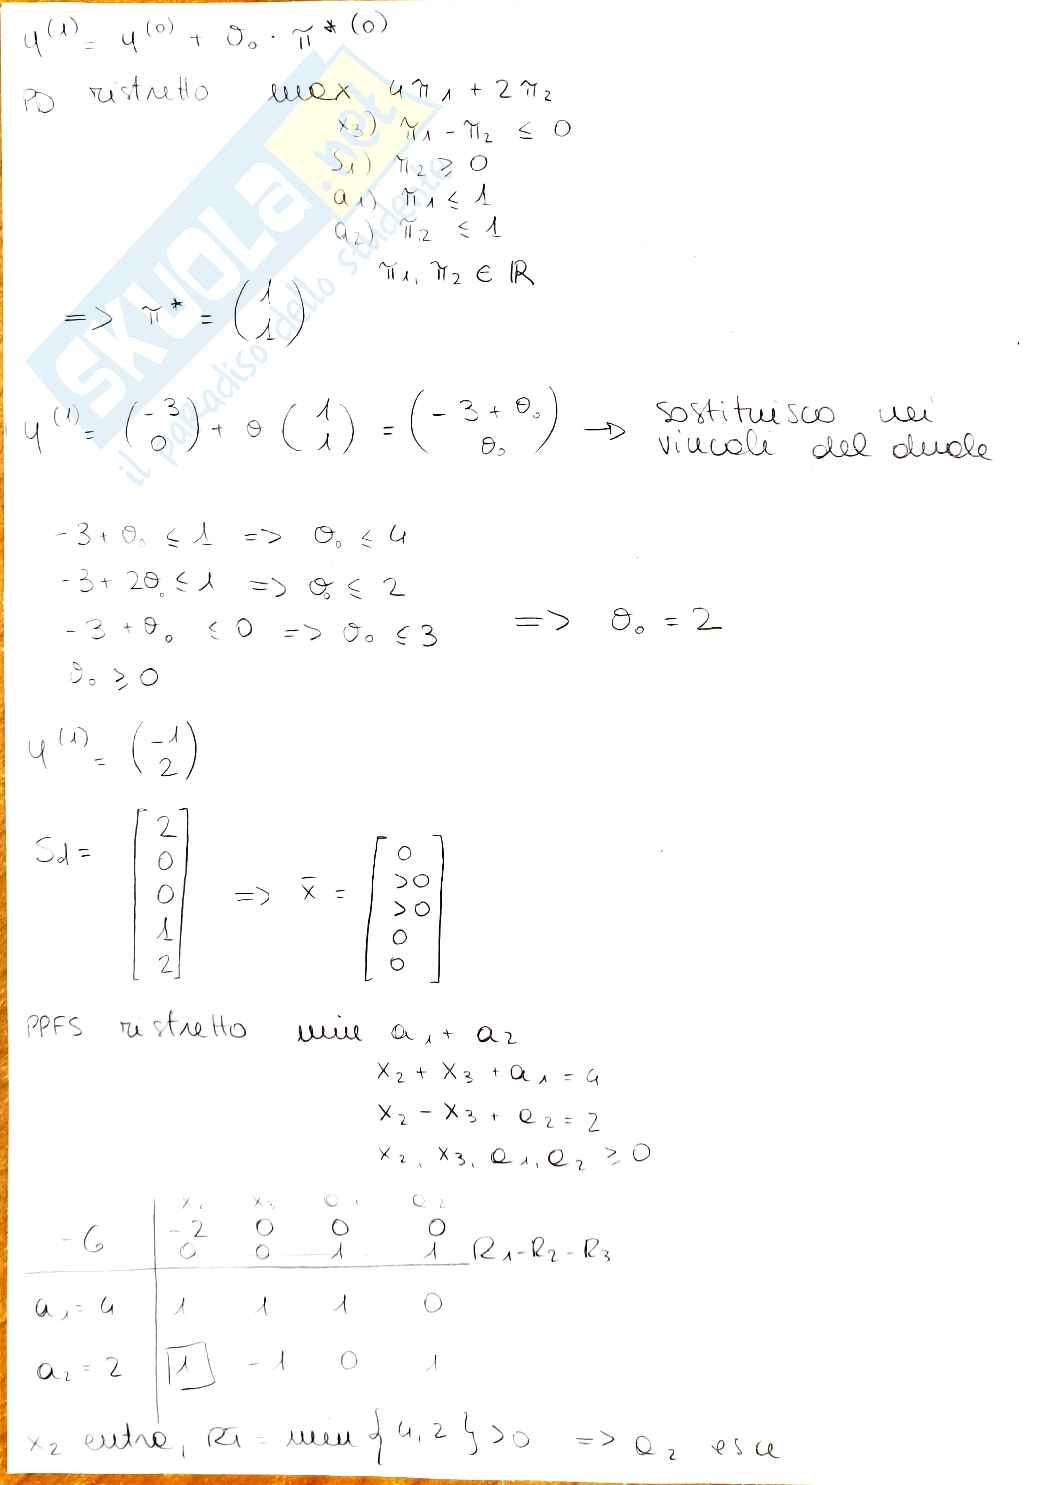 y⁽¹⁾ = y⁽⁰⁾ + θ₀ · π*⁽⁰⁾
PD ristretto max 4π₁ + 2π₂
x₃) π₁ - π₂ ≤ 0
S₁) π₂ ≥ 0
a₁) π₁ ≤ 1
a₂) π₂ ≤ 1
π₁, π₂ ∈ ℝ
=> π* = (1 1)
SKUOLA.net
il paradiso dello studente
y⁽¹⁾ = (-3 0) + θ (1 1) = (-3 + θ₀ θ₀) → sostituisco nei
vincoli del duale
-3 + θ₀ ≤ 1 => θ₀ ≤ 4
-3 + 2θ₀ ≤ 1 => θ₀ ≤ 2
-3 + θ₀ ≤ 0 => θ₀ ≤ 3 => θ₀ = 2
θ₀ ≥ 0
y⁽¹⁾ = (-1 2)
Sd = [2 0 0 1 2] => x̄ = [0 >0 >0 0 0]
PPFS ristretto min a₁ + a₂
x₂ + x₃ + a₁ = 4
x₂ - x₃ + a₂ = 2
x₂, x₃, a₁, a₂ ≥ 0
x₂ x₃ a₁ a₂
-6 -2 0 0 0
0 0 1 1 R₁-R₂-R₃
a₁ = 4 1 1 1 0
a₂ = 2 1 -1 0 1
x₂ entra, = min {4, 2} > 0 => a₂ esce